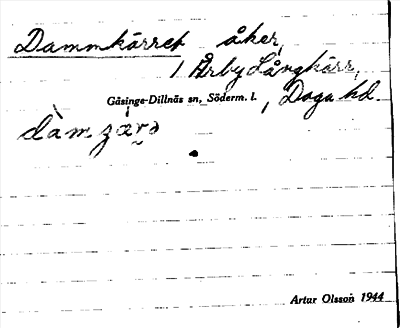 Dammkärret åker,
1 Årby Långkärr,
Gåsinge-Dillnäs sn, Söderm. l. , Daga hd.
Artur Olsson 1944